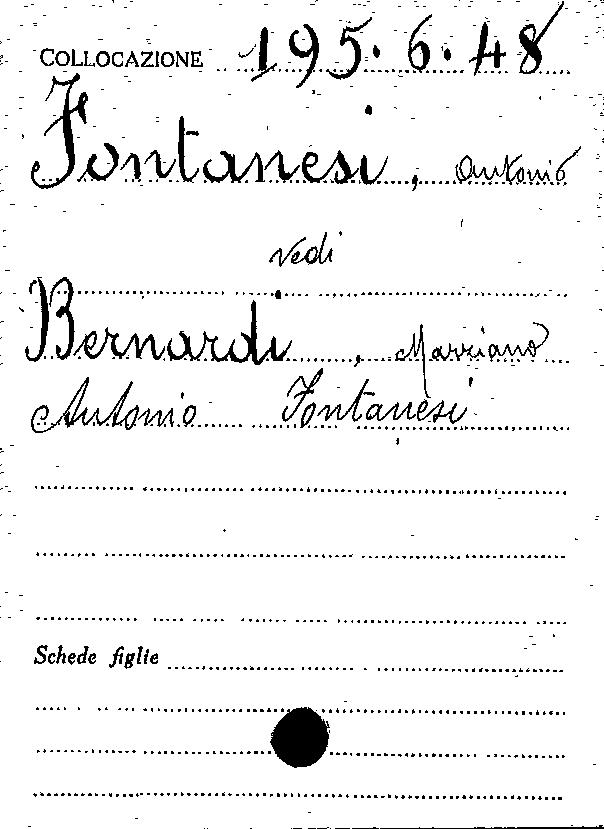 COLLOCAZIONE 195.6.48
Fontanesi, Antonio
vedi
Bernardi, Marziano
Antonio Fontanesi
Schede figlie